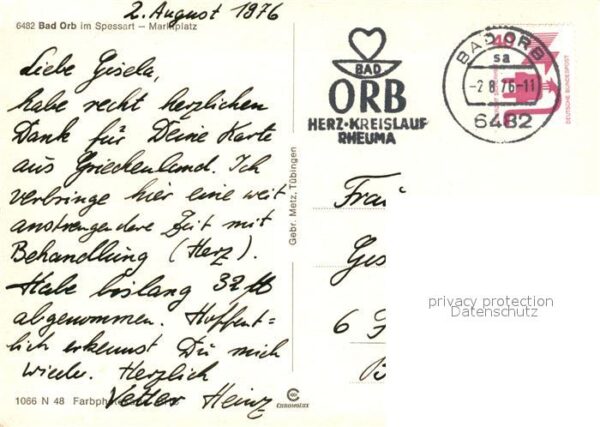 2. August 1976
6482 Bad Orb im Spessart — Marktplatz
Liebe Gisela,
habe recht herzlichen
Dank für Deine Karte
aus Griechenland. Ich
verbringe hier eine weit
anstrengendere Zeit mit
Behandlung (Herz).
Habe bislang 32 ℔
abgenommen. Hoffent=
lich erkennst Du mich
wieder. Herzlich
Vetter Heinz
1066 N 48
CHROMOLUX
Gebr. Metz, Tübingen
BAD
ORB
HERZ·KREISLAUF
RHEUMA
BAD ORB
sa
-2.8.76-11
6482
40
DEUTSCHE BUNDESPOST
Frau
Gis
6 F
privacy protection
Datenschutz